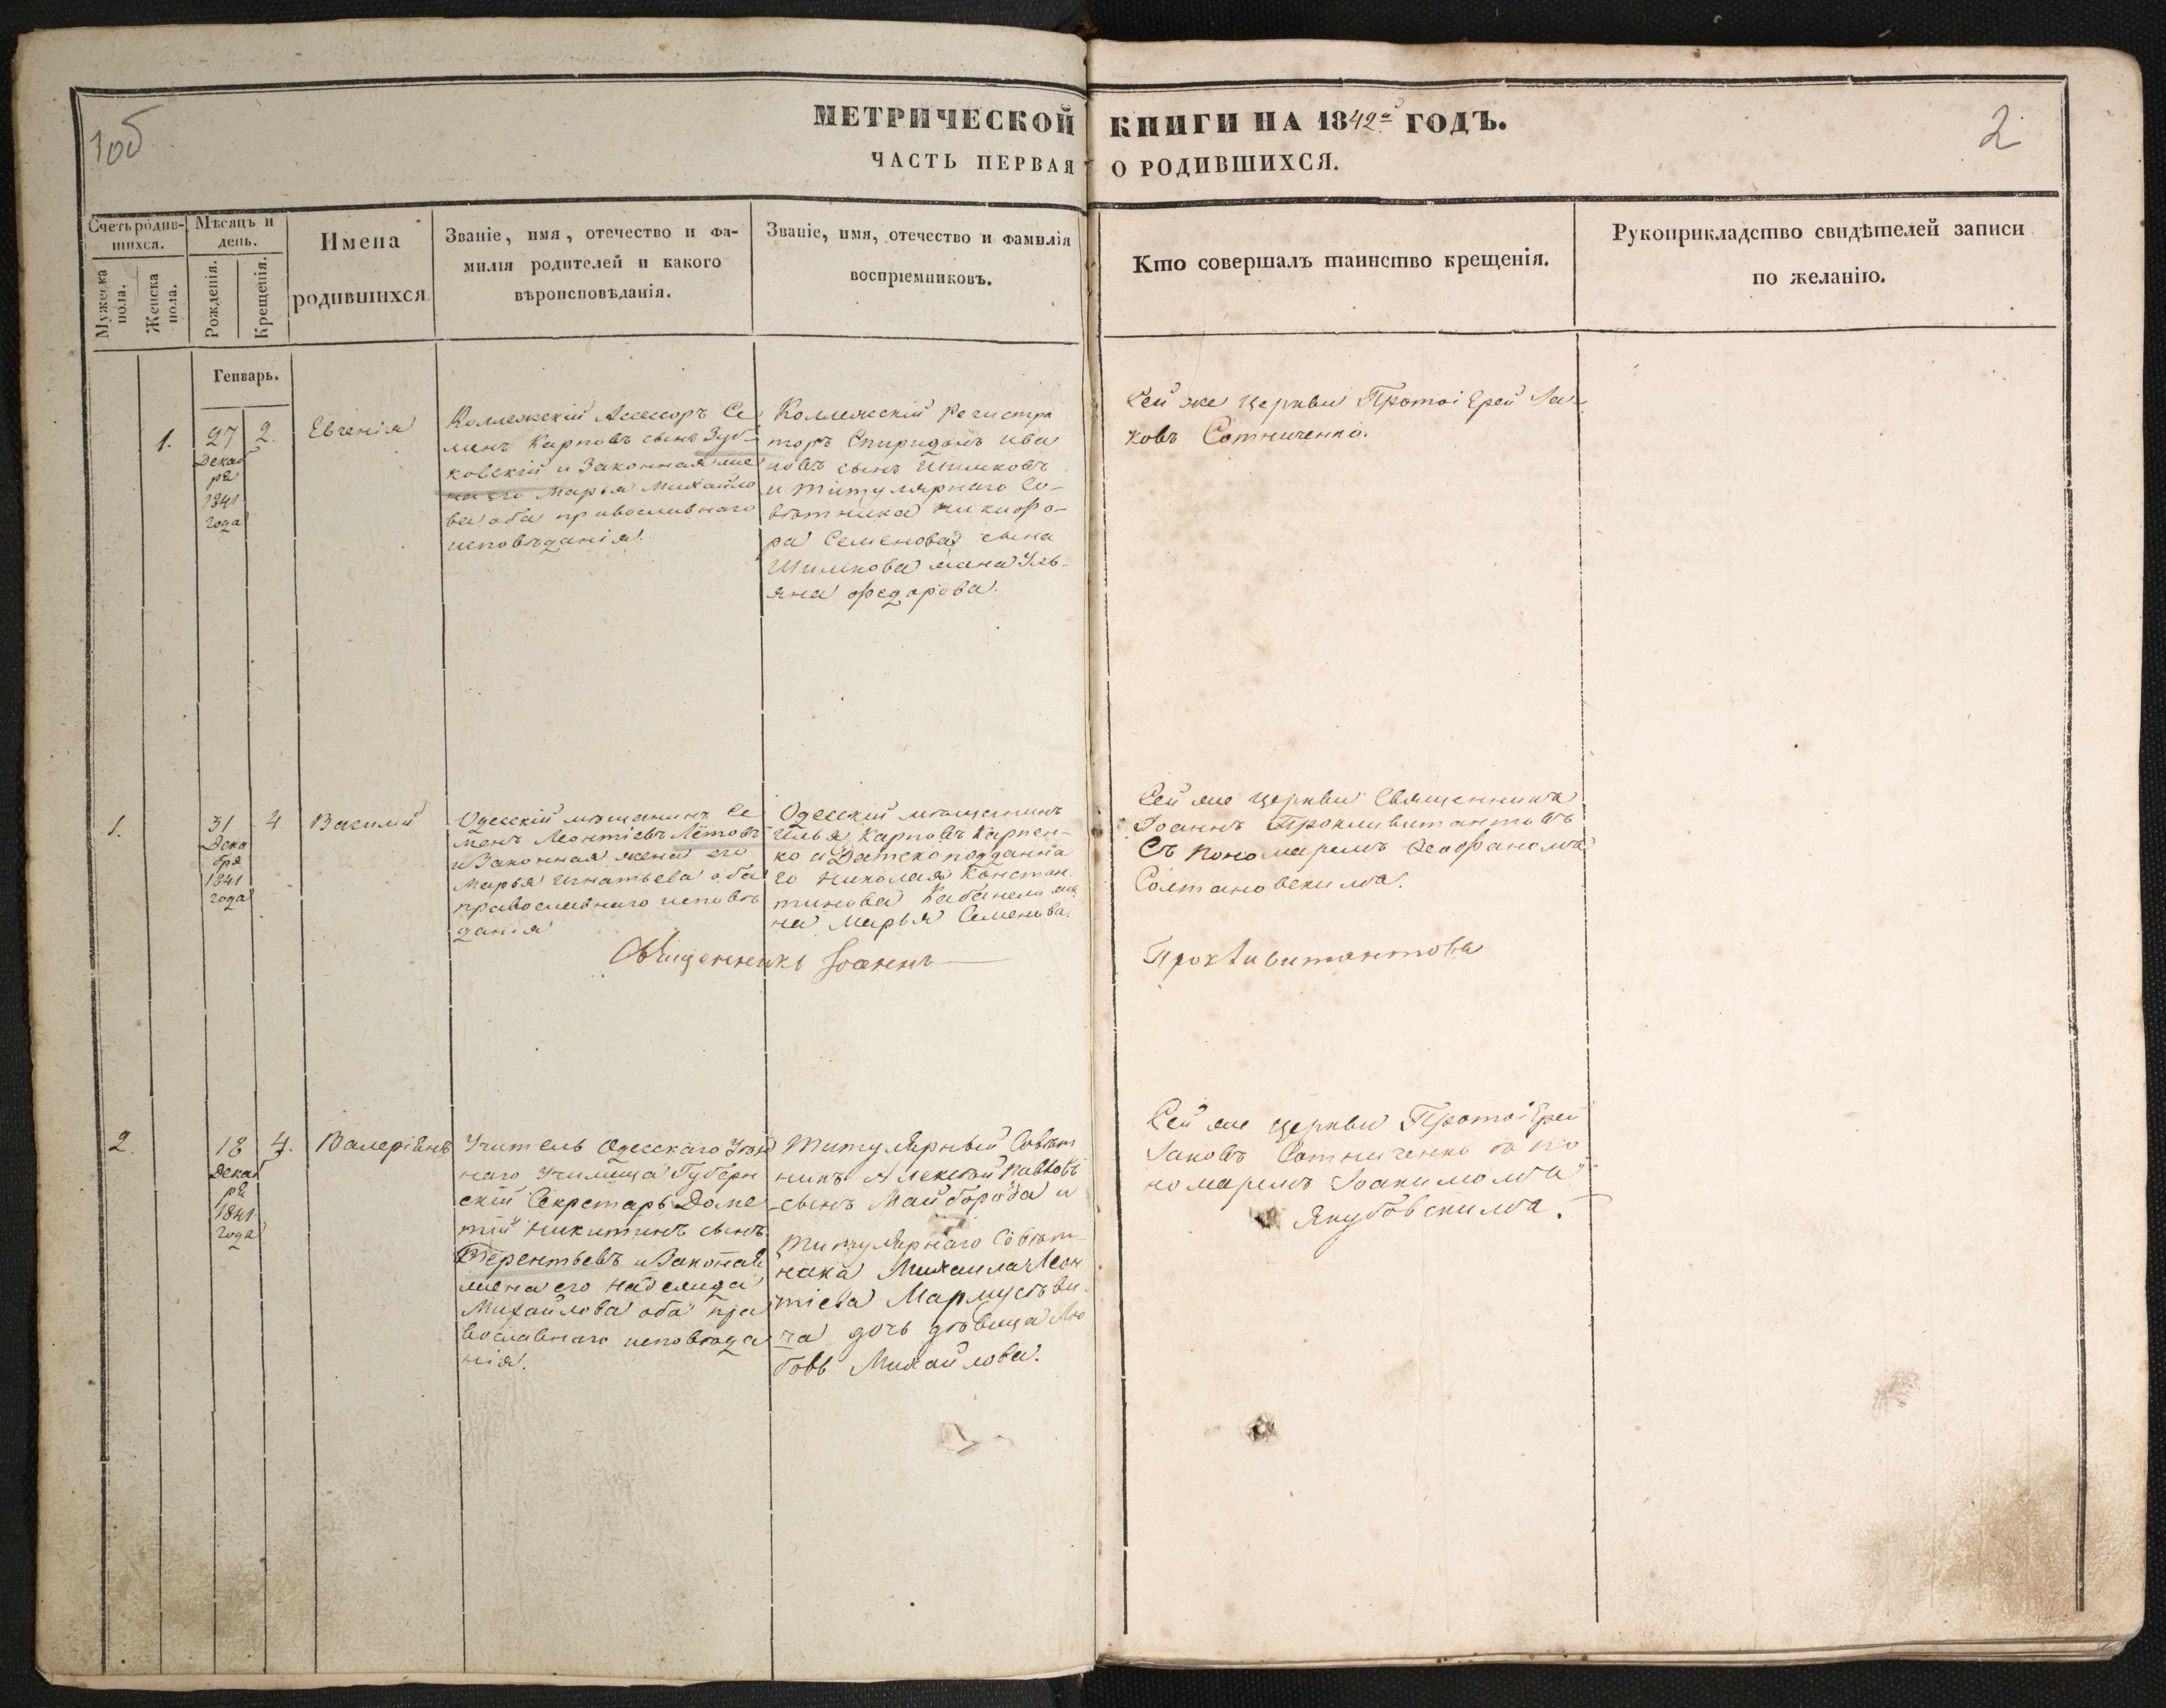 1об
2
МЕТРИЧЕСКОЙ КНИГИ НА 1842й ГОДЪ.
ЧАСТЬ ПЕРВАЯ О РОДИВШИХСЯ.
Счетъ родив-
шихся.
Мужеска
пола.
Женска
пола.
Мѣсяцъ и
день.
Рожденія.
Крещенія.
Имена
родившихся
Званіе, имя, отечество и фа-
милія родителей и какого
вѣроисповѣданія.
Званіе, имя, отечество и фамилія
воспріемниковъ.
Кто совершалъ таинство крещенія.
Рукоприкладство свидѣтелей записи
по желанію.
Генварь.
1.
27
Декаб
ря
1841
года
2.
Евгенія
Коллежскій Ассесоръ Се
менъ Карповъ сынъ Зуб-
ковскій и Законная же
на его Марья Михайло
ва оба православнаго
исповѣданія.
Коллежскій Регистра
торъ Спиридонъ Ива
новъ сынъ Шимковъ
и Титулярнаго Со-
вѣтника Никифо-
ра Семенова сына
Шимкова жена Уль-
яна Федорова.
Сей же Церкви Протоіерей Іа-
ковъ Сотниченко.
1.
31
Дека
бря
1841
года
4
Василій
Одесскій мѣщанинъ Се
менъ Леонтіевъ Лётовъ
и Законная жена его
Марья Игнатьева оба
православнаго исповѣ
данія
Одесскій мѣщанинъ
Илья Карповъ Карпен-
ко и Датскоподданна
го Николая Констан
тинова Кабанели же
на Марья Семенова.
Сей же Церкви Священникъ
Іоаннъ Прокливитантовъ
Съ пономаремъ Феофаномъ
Солтановскимъ.
Священникъ Іоаннъ
Прокливитантовъ
2.
18
Декаб
ря
1841
года
4.
Валеріянъ
Учитель Одесскаго Уѣзд
наго Училища Губерн
скій Секретарь Доме
тій Никитинъ сынъ
Терентьевъ и Законая
жена его Надежда
Михайлова оба пра
вославнаго исповѣда
нія.
Титулярный Совѣт
никъ Алексѣй Павловъ
сынъ Майборода и
Титулярнаго Совѣт-
ника Михаила Леон
тіева
ча дочь дѣвица Лю
бовь Михайлова.
Сей же Церкви Протоіерей
Іаковъ Сотниченко съ по
номаремъ Іоакимомъ
Якубовскимъ.